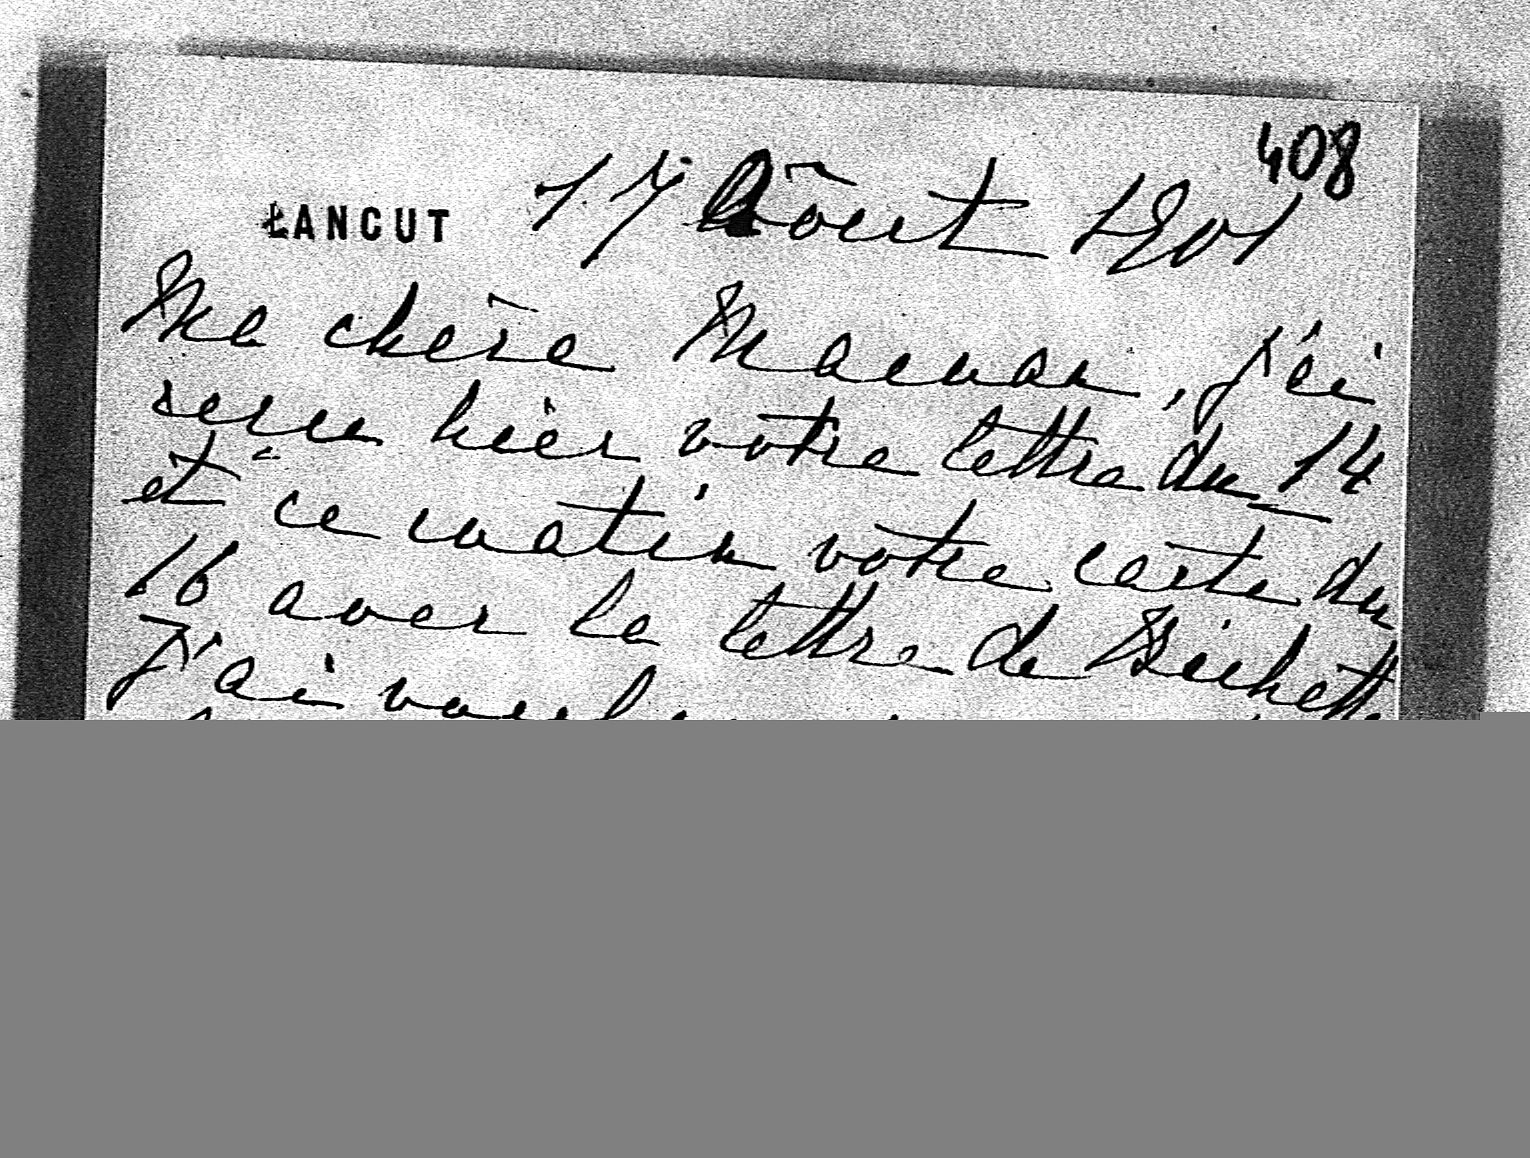 408
ŁANCUT 17 Août 1901
Ma chère Maman, j'ai
reçu hier votre lettre du 14
et ce matin votre carte du
16 avec la lettre de Bichette
J'ai